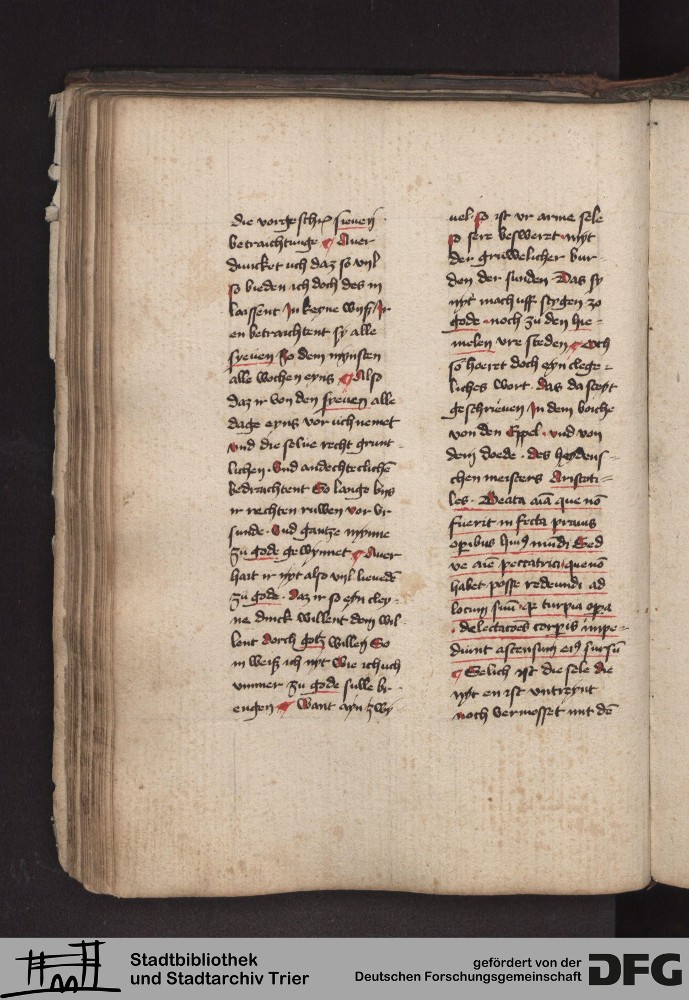 die vorgeschrͥ sieuen
betraichtunge ¶ Auer
dunckt uch daz so vyl
so bieden ich doch des in
laissent Jn keyne wyß Jr
en betraichtent sy alle
syeuen zo dem mynsten
alle wochen eyns ¶ Also
daz ir von den syeuen alle
dage eyns vor uch nemet
vnd die selue recht grunt
lichen . Vnd andechteclichē
bedrachtent So lange byß
ir rechten ruwen vor vr
sunde . Vnd gantze mynne
zu gode gewynnet ¶ Auer
hait ir nyt also vyl lieuedē
zu gode . daz ir so eyn cley-
ne dinck willent dem wil-
lent dorch gotz willen So
in weiß ich nyt Wie ich uch
vmmer zu gode sulle br-
engen ¶ Want ayn zwy
uel . so ist vr arme sele
so sere beswerzt myt
der gruwelicher bur-
den der sunden . Das sy
nyt mach uff stygen zo
gode . noch zu den hie-
melen vre steden ¶ Och
so hoeret doch eyn clege-
liches wort . das da steyt
geschrieuen Jn dem boiche
von den Eppel . vnd von
dem doede . des heydens-
chen meisters Aristoti-
les . Beata aīa que nō
fuerit infecta prauis
operibus huiꝰ mūdi Sed
ve aīe peccatrici que nō
habet posse redeundi ad
locum suū quia turpia opa
. delectacōes corporis impe-
diunt ascensum eiꝰ sursū
¶ Selich ist die sele die
nyt en ist vntreynt
noch vermosset mit dē
Stadtbibliothek
und Stadtarchiv Trier
gefördert von der
Deutschen Forschungsgemeinschaft
DFG